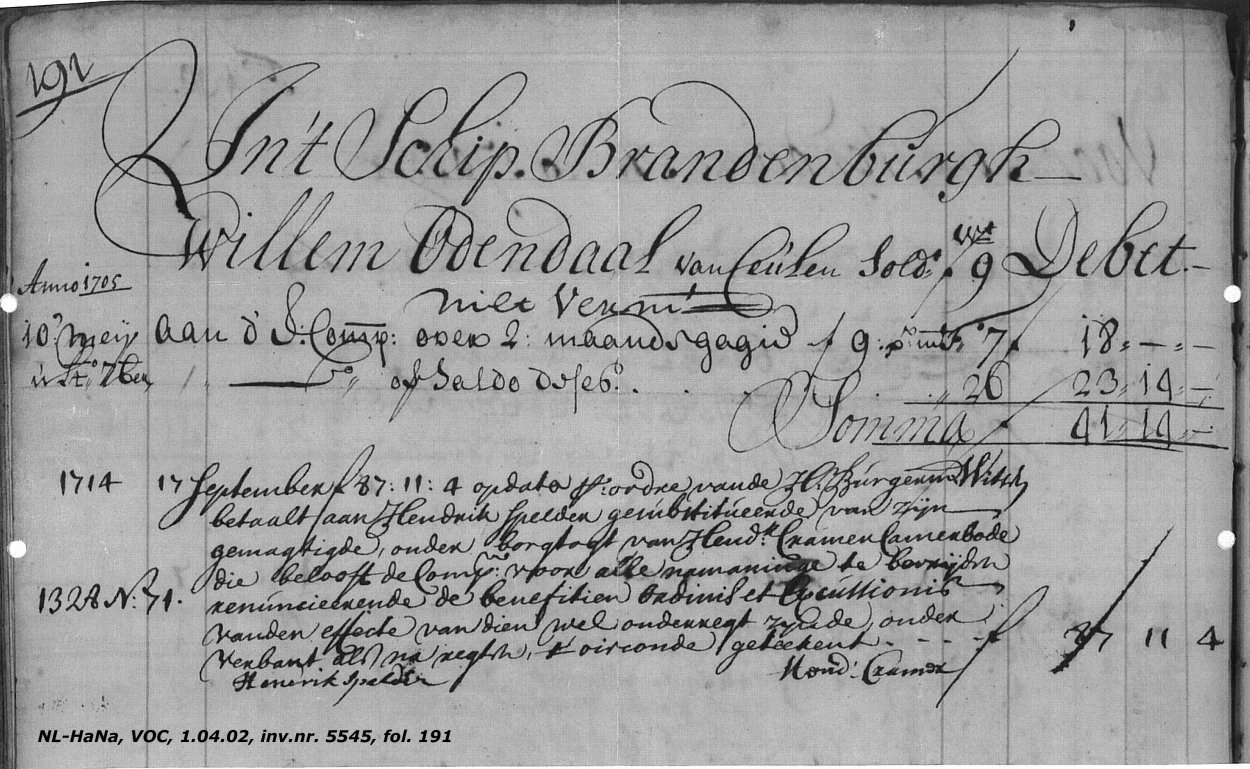 191
In't Schip. Brandenburgh
Willem Odendaal van Ceulen Sold:t f 9 Debet.
Anno 1705 niet Verm:t
10:' Meij aan d' E: Comp: over 2: maanden gagie f 9: p:r m:t F:o 7 f 18 " — " —
ult:o 7ber " " op Saldo deses . . . " 26 23 " 14 " —
Somma f 41 " 14 " —
1714 17 September f 37: 11: 4 op dato p:r ordre van de H:r Burgerm:r Witsen
betaalt aan Hendrik Spelden gesubstitueerde van zijn
gemagtigde, onder borgtogt van Hend:k Cramer Camerbode
die belooft de Comp:e voor alle namaninge te bevrijden
1328 N:o 71. renuncieerende de benefitien ordinis et Excussionis
van den effecte van dien wel onderregt zijnde, onder
verbant als na regten, t' oirconde geteekent - - - f 37 11 4
Henerik Spelden Hend:k Cramer
NL-HaNa, VOC, 1.04.02, inv.nr. 5545, fol. 191